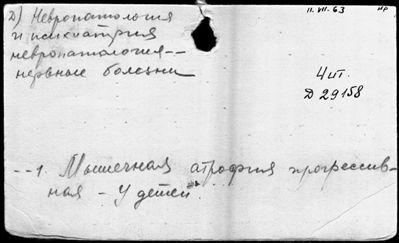 2) Невропатология
и психиатрия
невропатология --
нервные болезни
11.VII.63
нр
4 шт.
Д 29158
--1. Мышечная атрофия прогрессив-
ная - У детей.